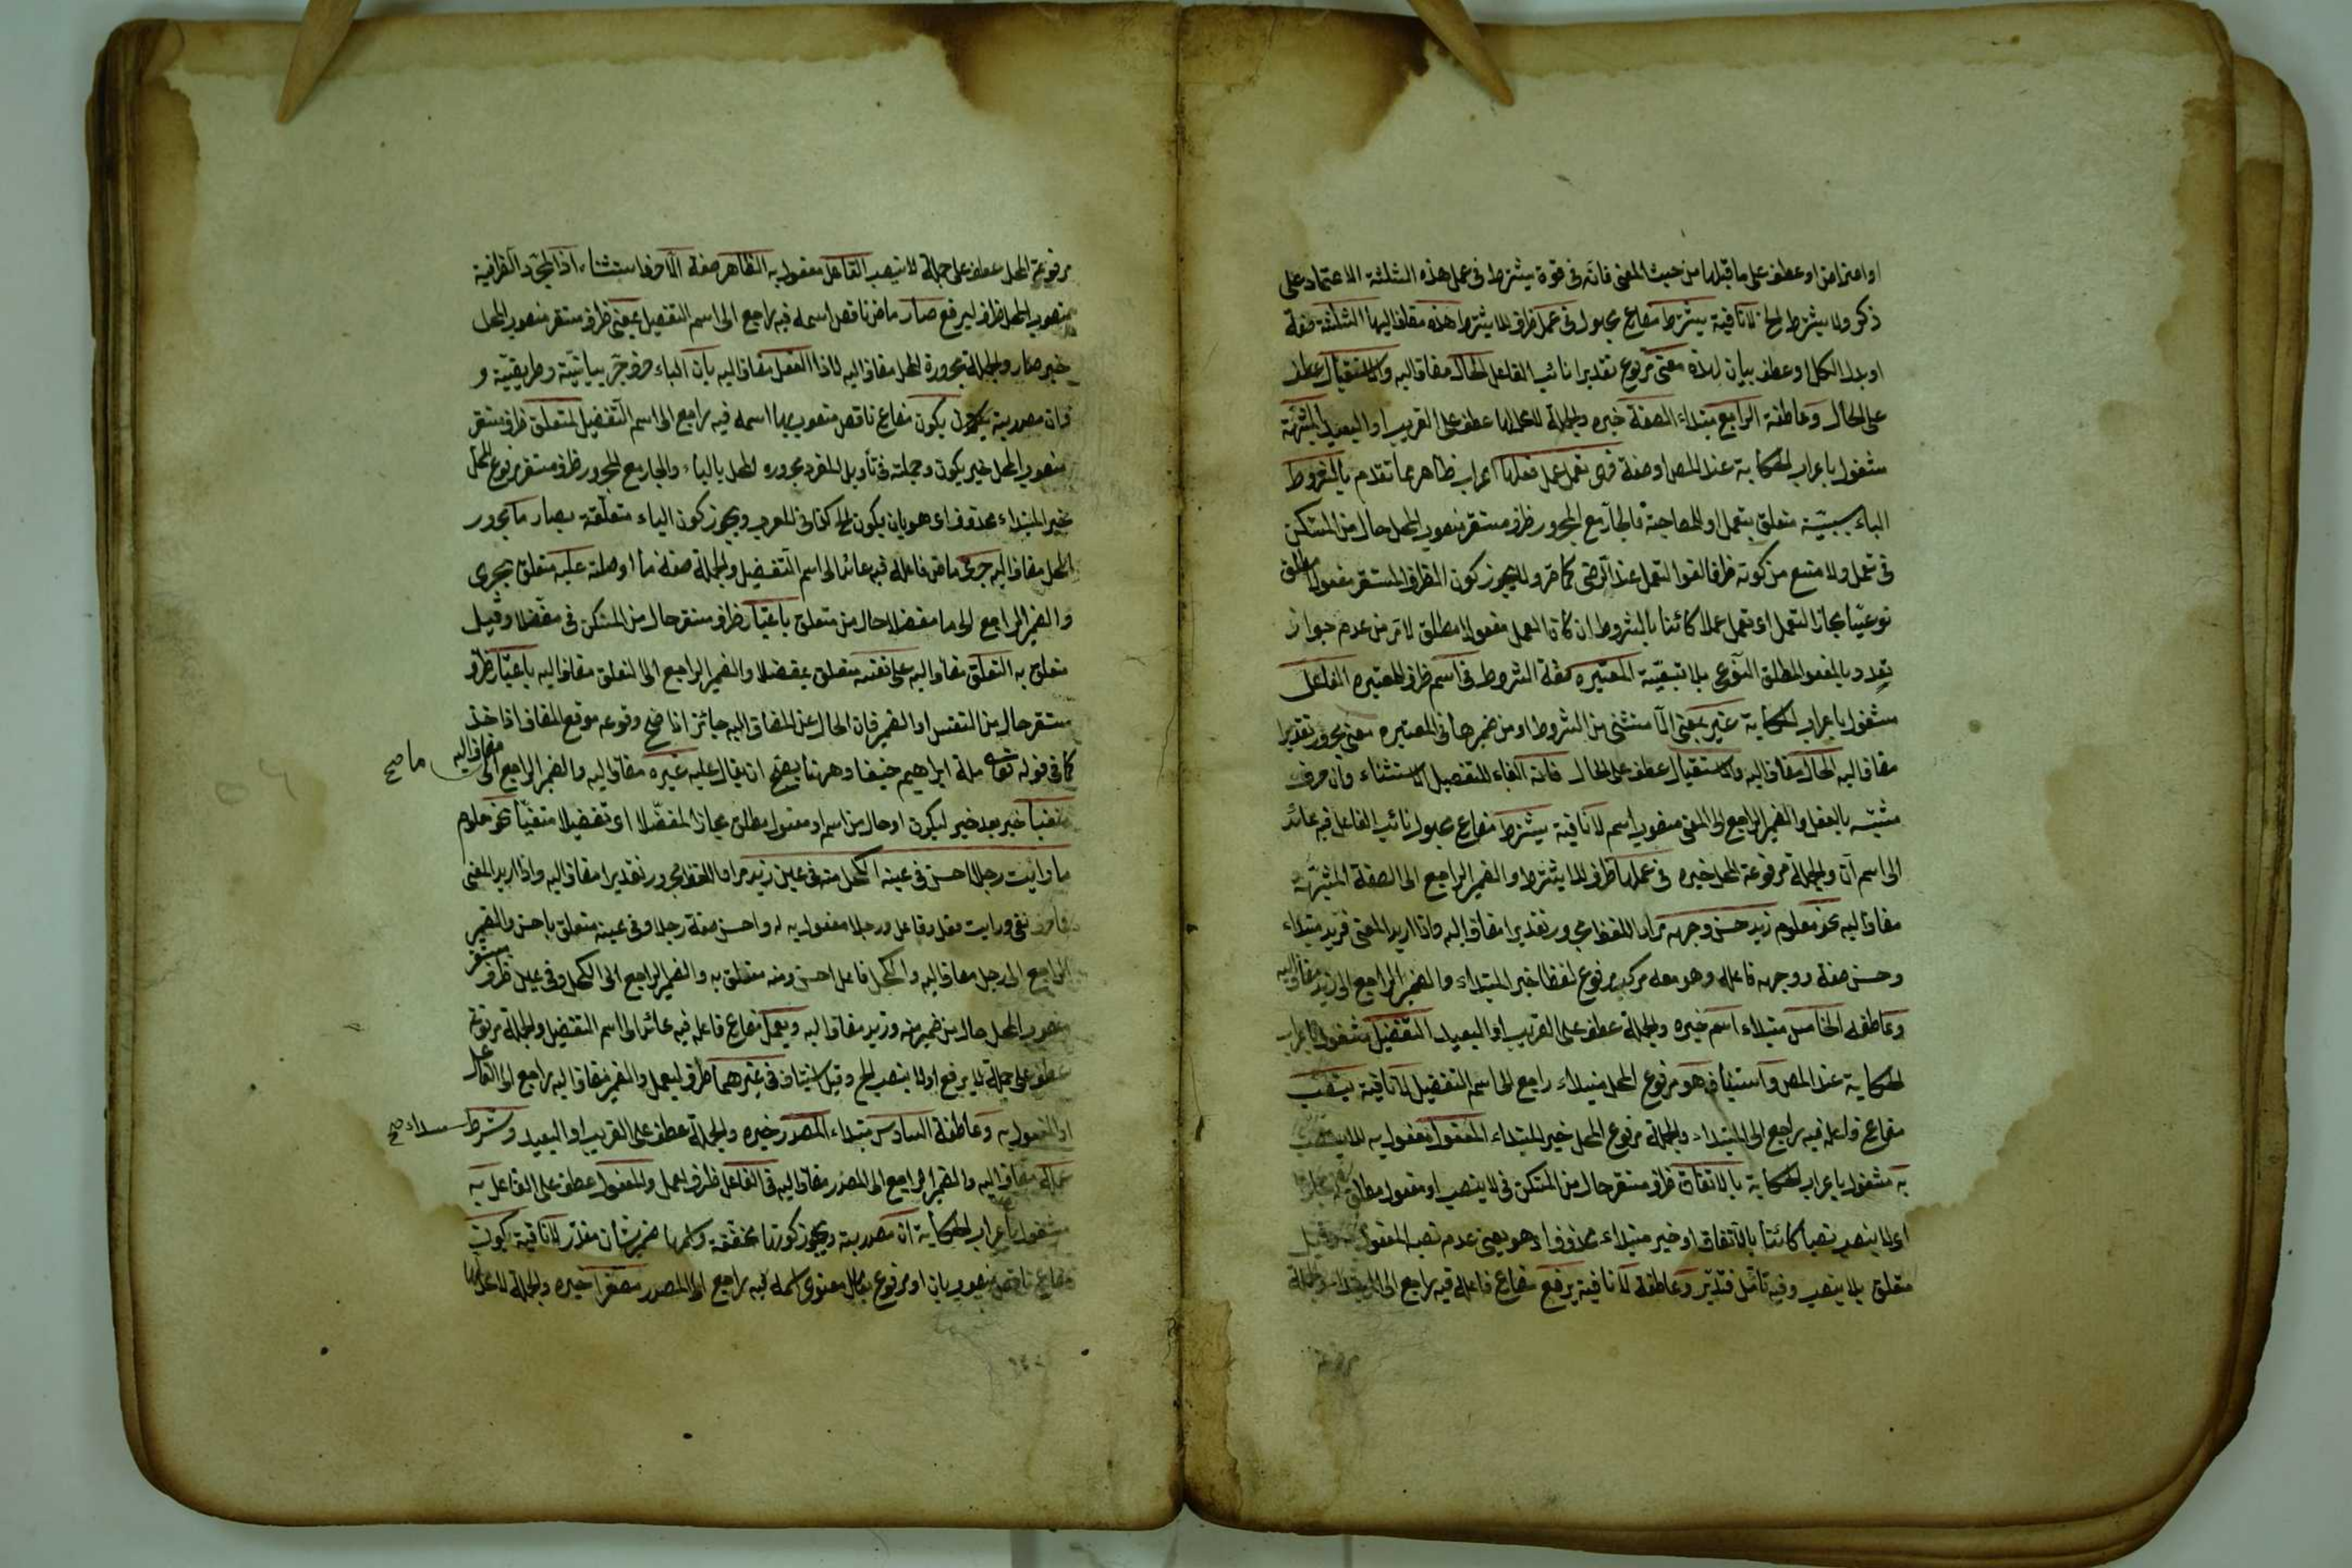 او اعتراض او عطف على ما قبلها من حيث المعنى فانه فى قوة يشترط فى عمل هذه الثلثة الاعتماد على
ذكر ولا يشترط الخ لا نافية يشترط مضارع مجهول فى عمل ظرف للا يشترط هذه مضاف اليها الثلثة صفة
او بدل الكل او عطف بيان لهذه معنى مرفوع تقديرا نائب الفاعل الحال مضاف اليه والاستقبال عطف
على الحال وعاطفة الرابع مبتداء الصفة خبره والجملة لا محل لها عطف على القريب او البعيد المشبهة
مشغول باعراب الحكاية عند المص او صفة فهى تعمل عمل فعلها اعراب ظاهر مما تقدم بالشروط
الباء سببية متعلق بتعمل او للمصاحبة فالجار مع المجرور ظرف مستقر منصوب المحل حال من المستكن
فى تعمل ولا منع من كونه ظرفا لغوا لتعمل عند الرضى كما مر ولا يجوز كون الظرف المستقر مفعولا مطلق
نوعيا مجازا لتعمل اى تعمل عملا كائنا بالشروط ان كان العمل مفعولا مطلق لا مر من عدم جواز
تعدد بالمفعول المطلق النوعى بلا تبعية المعتبرة صفة الشروط فى اسم ظرف للمعتبره الفاعل
مشغول باعراب الحكاية غير بمعنى الا مستثنى من الشروط او من ضميرها فى المعتبره معنى مجرور تقديرا
مضاف اليه الحال مضاف اليه والاستقبال عطف على الحال فانه الفاء للتفصيل الاستثناء وان حرف
مشبه بالفعل والضمير الراجع الى المعنى منصوب اسم لا نافية يشترط مضارع مجهول نائب الفاعل فيه عائد
الى اسم ان والجملة مرفوعة المحل خبره فى عملها ظرف للا يشترط والضمير الراجع الى الصفة المشبهة
مضاف اليه نحو معلوم زيد حسن وجهه مراد اللفظ مجرور تقديرا مضاف اليه واذا اريد المعنى فزيد مبتداء
وحسن صفة ووجهه فاعله وهو معه مركب مرفوع لفظا خبر المبتداء والضمير الراجع الى زيد مضاف اليه
وعاطفه الخامس مبتداء اسم خبره والجملة عطف على القريب او البعيد التفضيل مشغول باعراب
الحكاية عند المص واستيناف هو مرفوع المحل مبتداء راجع الى اسم التفضيل لا نافية ينصب
مضارع فاعله فيه راجع الى المبتداء والجملة مرفوع المحل خبر المبتداء المفعول مفعول به للا ينصب
به مشغول باعراب الحكاية بالاتفاق ظرف مستقر حال من المستكن فى لا ينصب او مفعول مطلق
اى لا ينصب نصبا كائنا بالاتفاق او خبر مبتداء محذوف اى هو يعنى عدم نصب المفعول به وقيل
متعلق بلا ينصب وفيه تامل فتدبر وعاطفة لا نافية يرفع مضارع فاعله فيه راجع الى المبتداء والجملة
مرفوعة المحل عطف على جملة لا ينصب الفاعل مفعول به الظاهر صفة الا حرف استثناء اذا لمجرد الظرفية
منصوب المحل ظرف ليرفع صار ماض ناقص اسمه فيه راجع الى اسم التفضيل بمعنى ظرف مستقر منصوب المحل
خبر صار والجملة مجرورة المحل مضاف اليه لاذا الفعل مضاف اليه بان الباء حرف جر بيانية وطريقية و
فان مصدرية يكون مضارع ناقص منصوب بها اسمه فيه راجع الى اسم التفضيل لمتعلق ظرف مستقر
منصوب المحل خبر يكون وجملته فى تأويل المفرد مجروره المحل بالباء والجار مع المجرور ظرف مستقر مرفوع المحل
خبر المبتداء محذوف اى هو بان يكون الخ كذا فى المعرب ويجوز كون الباء متعلقة بصار ما مجرور
المحل مضاف اليه جرى ماض فاعله فيه عائد الى اسم التفضيل والجملة صفة ما او صلته عليه متعلق بجرى
والضمير الراجع الى ما مفضلا حال من متعلق باعتبار ظرف مستقر حال من المستكن فى مفضلا وقيل
متعلق به التعلق مضاف اليه على نفسه متعلق بمفضلا والضمير الراجع الى المتعلق مضاف اليه باعتبار ظرف
مستقر حال من النفس او الضمير فان الحال عن المضاف اليه جائز اذا صح وقوعه موقع المضاف اذا حذف
كما فى قوله تعالى ملة ابراهيم حنيفا وههنا يصح ان يقال عليه غيره مضاف اليه والضمير الراجع الى
ما مضاف اليه صح
منفيا خبر بعد خبر ليكون او حال من اسم او مفعول مطلق مجازا لمفضلا اى تفضيلا منفيا نحو معلوم
ما رايت رجلا احسن فى عينه الكحل منه فى عين زيد مراد اللفظ مجرور تقديرا مضاف اليه واذا اريد المعنى
فما حرف نفى ورايت فعل وفاعل ورجلا مفعول به له واحسن صفة رجلا وفى عينه متعلق باحسن والضمير
الراجع الى رجل مضاف اليه والكحل فاعل احسن ومنه متعلق به والضمير الراجع الى الكحل وفى عين ظرف مستقر
منصوب المحل حال من ضمير منه وزيد مضاف اليه ويعمل مضارع فاعله فيه عائد الى اسم التفضيل والجملة مرفوعة
عطف على جملة لا يرفع او لا ينصب الخ وقيل استيناف فى غيرهما ظرف ليعمل والضمير مضاف اليه راجع الى الفاعل
او المفعول به وعاطفة السادس مبتداء المصدر خبره والجملة عطف على القريب او البعيد وشرط
مبتداء صح
عمله مضاف اليه والضمير الراجع الى المصدر مضاف اليه فى الفاعل ظرف لعمل والمفعول عطف على الفاعل به
مشغول باعراب الحكاية ان مصدرية ويجوز كونها مخففة واسمها ضمير شان مقدر لا نافية يكون
مضارع ناقص منصوب بان او مرفوع بعامل معنوى اسمه فيه راجع الى المصدر مصغرا خبره والجملة لا محل لها